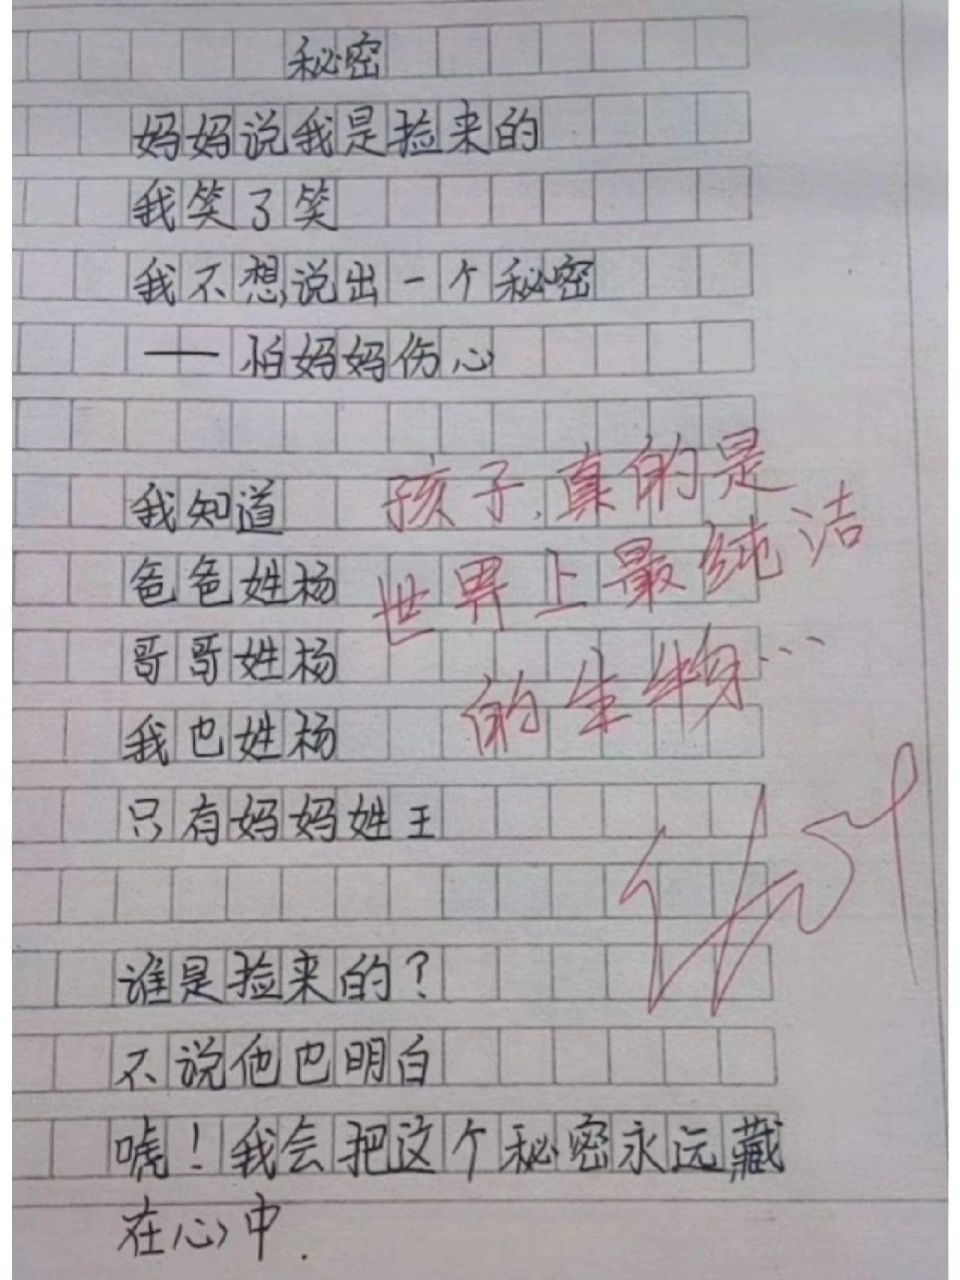 秘密
妈妈说我是捡来的
我笑了笑
我不想说出一个秘密
——怕妈妈伤心
我知道
爸爸姓杨
哥哥姓杨
我也姓杨
只有妈妈姓王
谁是捡来的？
不说他也明白
唬！我会把这个秘密永远藏
在心中.
孩子，真的是
世界上最纯洁
的生物…